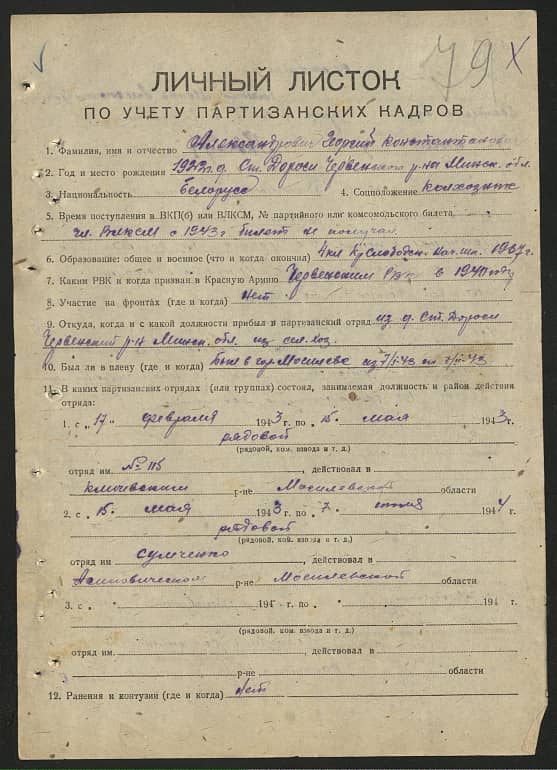 79 х
ЛИЧНЫЙ ЛИСТОК
ПО УЧЕТУ ПАРТИЗАНСКИХ КАДРОВ
1. Фамилия, имя и отчество Александрович Георгий Константинович
2. Год и место рождения 1922 г. д. Ст. Дороги Червенского р-на Минск. обл.
3. Национальность белорус 4. Соцположение колхозник
5. Время поступления в ВКП(б) или ВЛКСМ, № партийного или комсомольского билета
чл. ВЛКСМ с 1943 г билет не получал
6. Образование: общее и военное (что и когда окончил) 4 кл 1937 г.
7. Каким РВК и когда призван в Красную Армию Червенским РВК в 1940 году
8. Участие на фронтах (где и когда) нет
9. Откуда, когда и с какой должности прибыл в партизанский отряд из д. Ст. Дороги
Червенский р-н Минск. обл. из сел. хоз.
10. Был ли в плену (где и когда) Был в гор. Могилеве из
11. В каких партизанских отрядах (или группах) состоял, занимаемая должность и район действия
отряда:
1. с „17" февраля 1943 г. по „15" мая 1943 г.
рядовой
(рядовой, ком. взвода и т. д.)
отряд им. № 115, действовал в
р-не Могилевской области
2. с „15" мая 1943 г. по „7" 1944 г.
рядовой
(рядовой, ком. взвода и т. д.)
отряд им. Сумченко, действовал в
р-не Могилевской области
3. с „ " 194 г. по „ " 194 г.
(рядовой, ком. взвода и т. д.)
отряд им., действовал в
р-не области
12. Ранения и контузии (где и когда) Нет